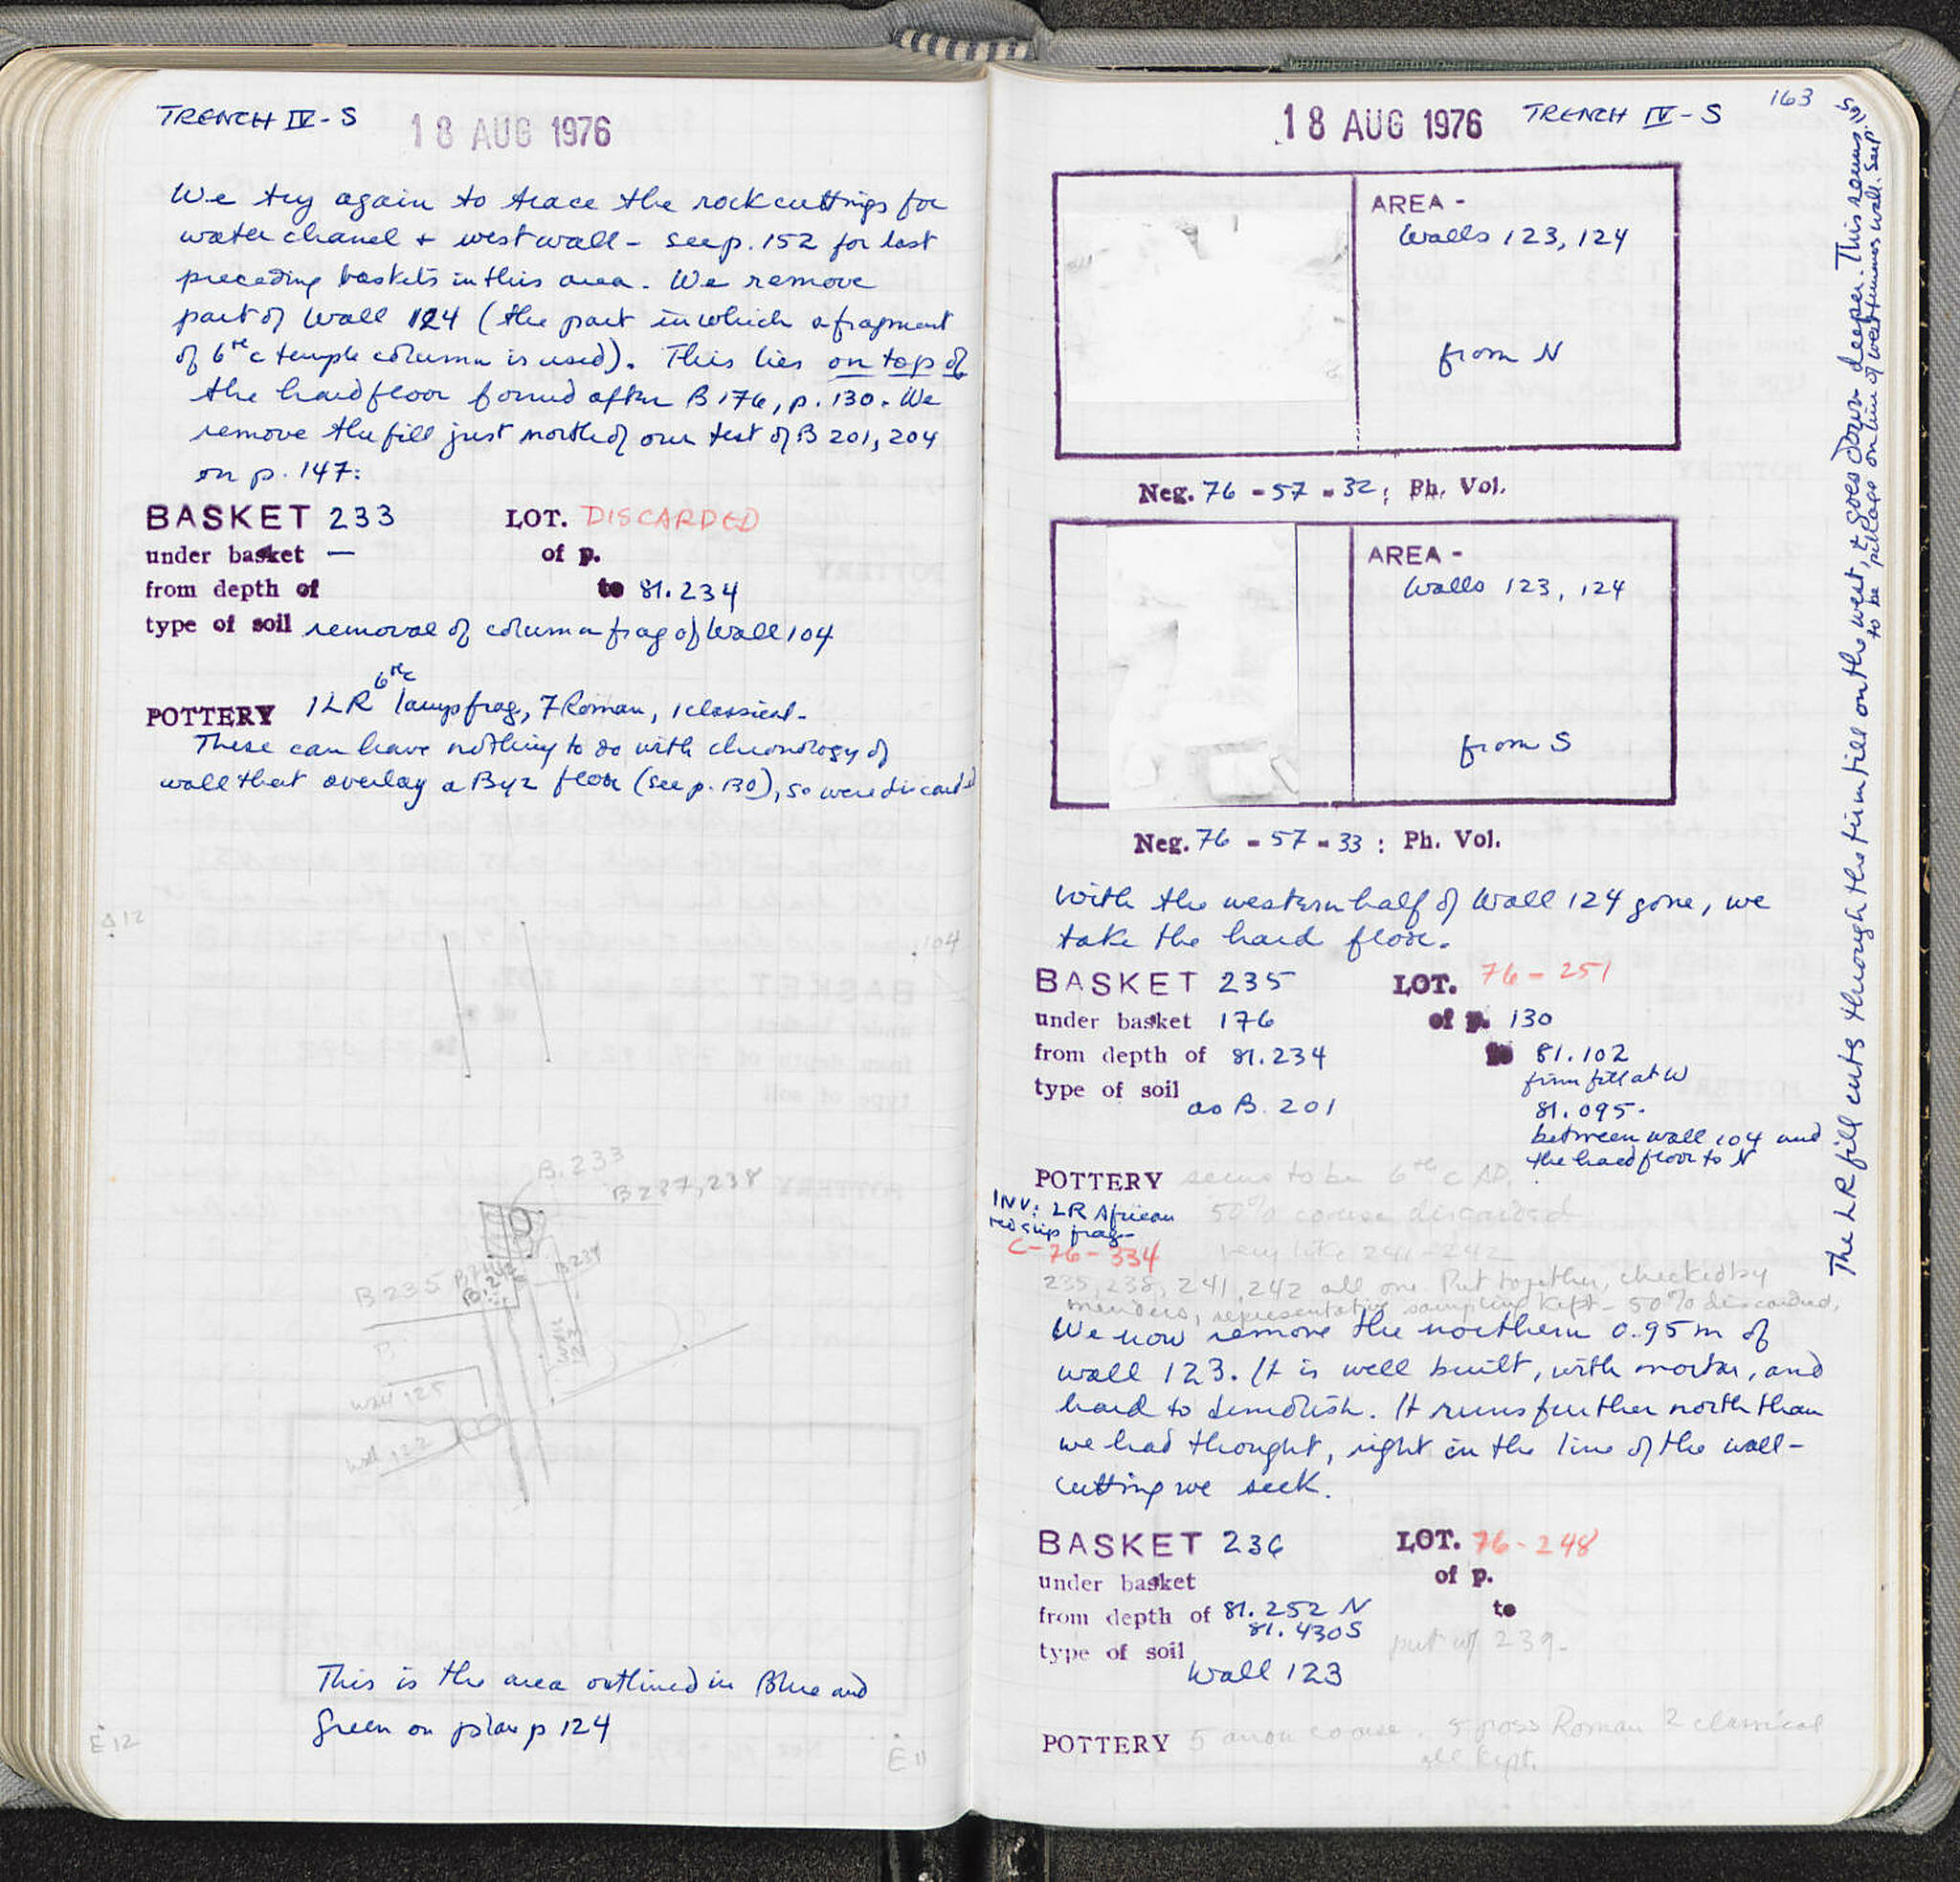 TRENCH IV - S
18 AUG 1976
We try again to trace the rock cuttings for
water chanel + west wall - see p. 152 for last
preceding baskets in this area. We remove
part of Wall 124 (the part in which a fragment
of 6th c temple column is used). This lies on top of
the hard floor found after B 176, p. 130. We
remove the fill just north of our test of B 201, 204
on p. 147:
BASKET 233 LOT. DISCARDED
under basket — of p.
from depth of to 81.234
type of soil removal of column frag of Wall 104
POTTERY 1 LR 6th c lamp frag, 7 Roman, 1 classical.
These can have nothing to do with chronology of
wall that overlay a Byz floor (see p. 130), so were discarded
Δ12
104
B. 233
B 237, 238
B 235
B. 242
Wall 123
Wall 125
Wall 122
This is the area outlined in Blue and
Green on plan p 124
E 12
E 11
163
18 AUG 1976 TRENCH IV - S
AREA -
Walls 123, 124
from N
Neg. 76 - 57 - 32 : Ph. Vol.
AREA -
Walls 123, 124
from S
Neg. 76 - 57 - 33 : Ph. Vol.
With the western half of Wall 124 gone, we
take the hard floor.
BASKET 235 LOT. 76 - 251
under basket 176 of p. 130
from depth of 81.234 to 81.102
firm fill at W
81.095.
type of soil as B. 201
between wall 104 and
the hard floor to N
POTTERY seems to be 6th c AD.
50% coarse discarded
very like 241 - 242
INV: LR African
red slip frag-
C-76-334
235, 238, 241, 242 all one. Put together, checked by
menders, representative sampling kept - 50% discarded.
We now remove the northern 0.95 m of
wall 123. It is well built, with mortar, and
hard to demolish. It runs further north than
we had thought, right in the line of the wall-
cutting we seek.
BASKET 236 LOT. 76-248
under basket of p.
from depth of 81.252 N to
81.430 S
type of soil Wall 123
put w/ 239-
POTTERY 5 anon coarse. 5 gross Roman 2 classical
all kept.
The LR fill cuts through the firm fill on the west, + goes down deeper. This seems
to be pillage on line of west temenos wall. See p.